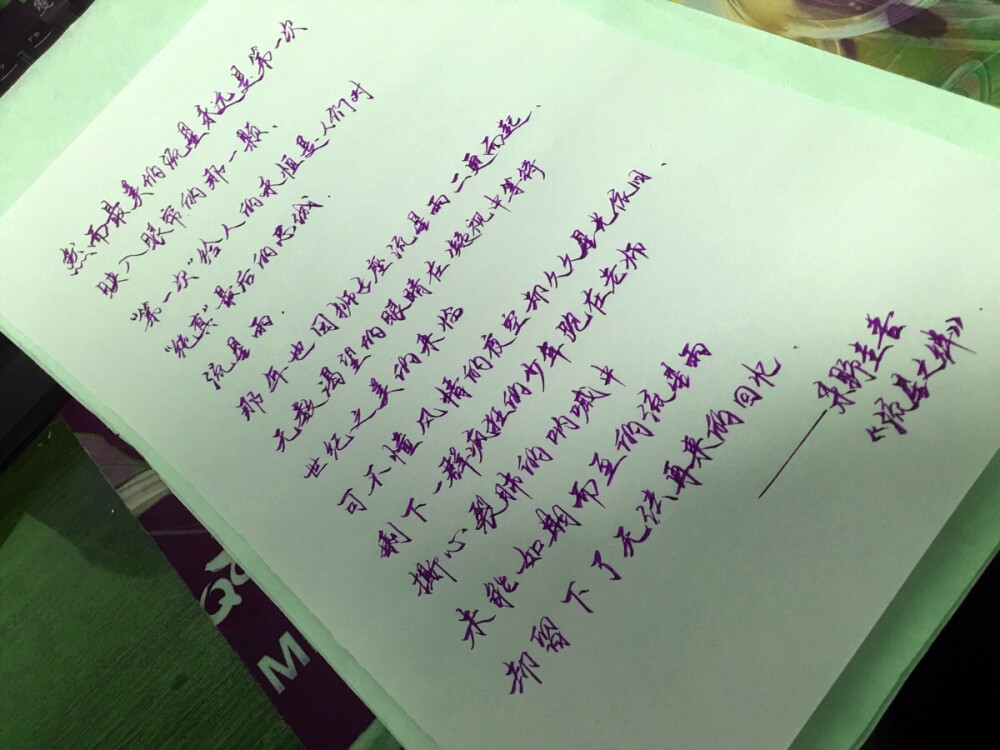 然而最美的流星永远是第一次
映入眼帘的那一颗.
“第一次”给人的永恒是人们对
“纯真”最后的忠诚.
流星雨.
那年也因狮子座流星雨一夏而起.
无数渴望的眼睛在凝视中等待
世纪之美的来临
可不懂风情的夜空却久久星光依旧.
剩下一群疯狂的少年跑在老师
撕心裂肺的呐喊中
未能如期而至的流星雨
却留下了无法再来的回水.
——圭吾
《流星之绊》
M